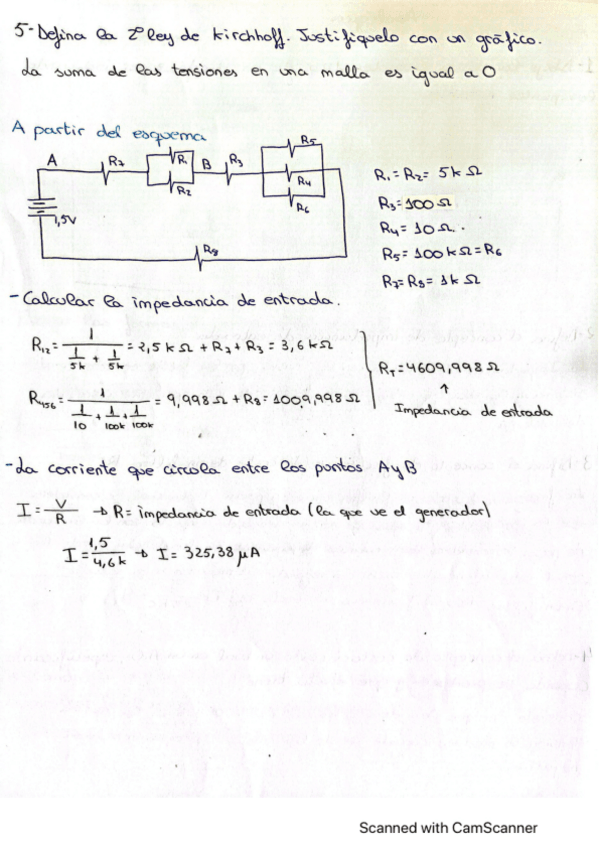 5-Defina la 2º ley de Kirchhoff. Justifíquelo con un gráfico.
La suma de las tensiones en una malla es igual a 0
A partir del esquema
A R7 R1 R2 B R3 R5 R4 R6
1,5V
R8
R1 = R2 = 5k Ω
R3 = 100 Ω
R4 = 10 Ω.
R5 = 100 k Ω = R6
R7 = R8 = 1k Ω
- Calcular la impedancia de entrada.
R12 = 1 / (1/5k + 1/5k) = 2,5 k Ω + R7 + R3 = 3,6 k Ω
R456 = 1 / (1/10 + 1/100k + 1/100k) = 9,998 Ω + R8 = 1009,998 Ω
RT = 4609,998 Ω
↑
Impedancia de entrada
-La corriente que circola entre los puntos A y B
I = V/R → R = impedancia de entrada (la que ve el generador)
I = 1,5/4,6k → I = 325,38 μA
Scanned with CamScanner